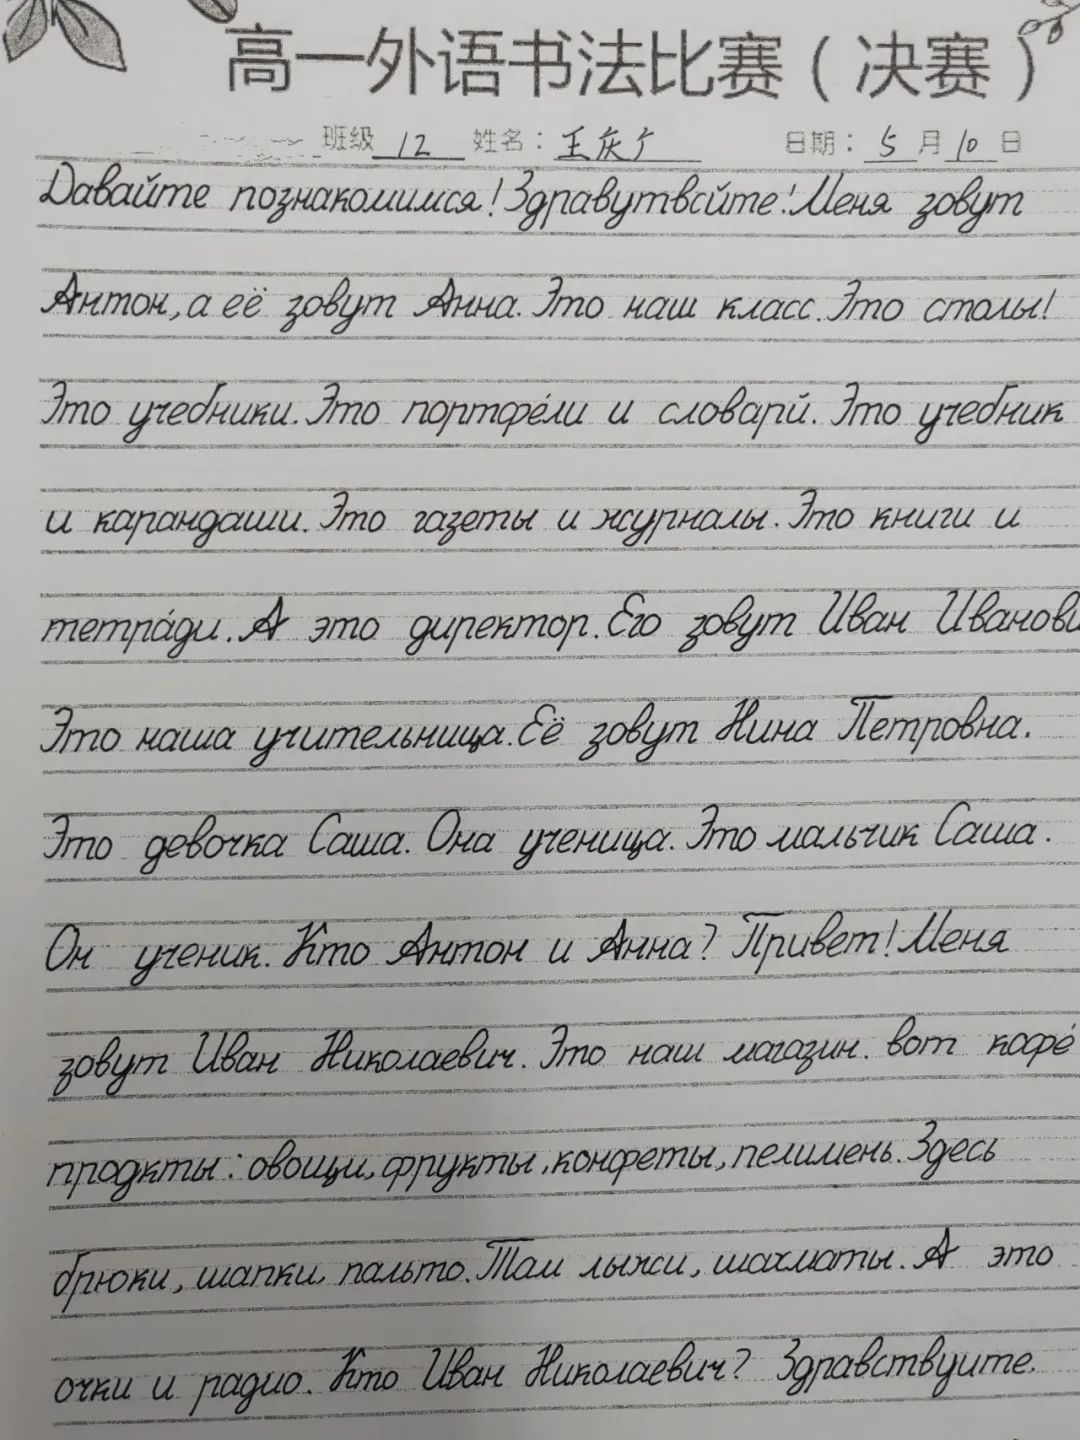 高一外语书法比赛（决赛）
班级 12 姓名： 王灰广 日期： 5 月 10 日
Давайте познакомимся! Здравутвсйте! Меня зовут
Антон, а её зовут Анна. Это наш класс. Это столы!
Это учебники. Это портфе́ли и словарй. Это учебник
и карандаши. Это газеты и журналы. Это книги и
тетра́ди. А это директор. Его зовут Иван Иванови
Это наша учительница. Её зовут Нина Петровна.
Это девочка Саша. Она ученица. Это мальчик Саша.
Он ученик. Кто Антон и Анна? Привет! Меня
зовут Иван Николаевич. Это наш магазин. вот кафе́
продкты: овощи, фрукты, конфеты, пелимень. Здесь
брюки, шапки, пальто. Там лыжи, шахматы. А это
очки и радио. Кто Иван Николаевич? Здравствуите.